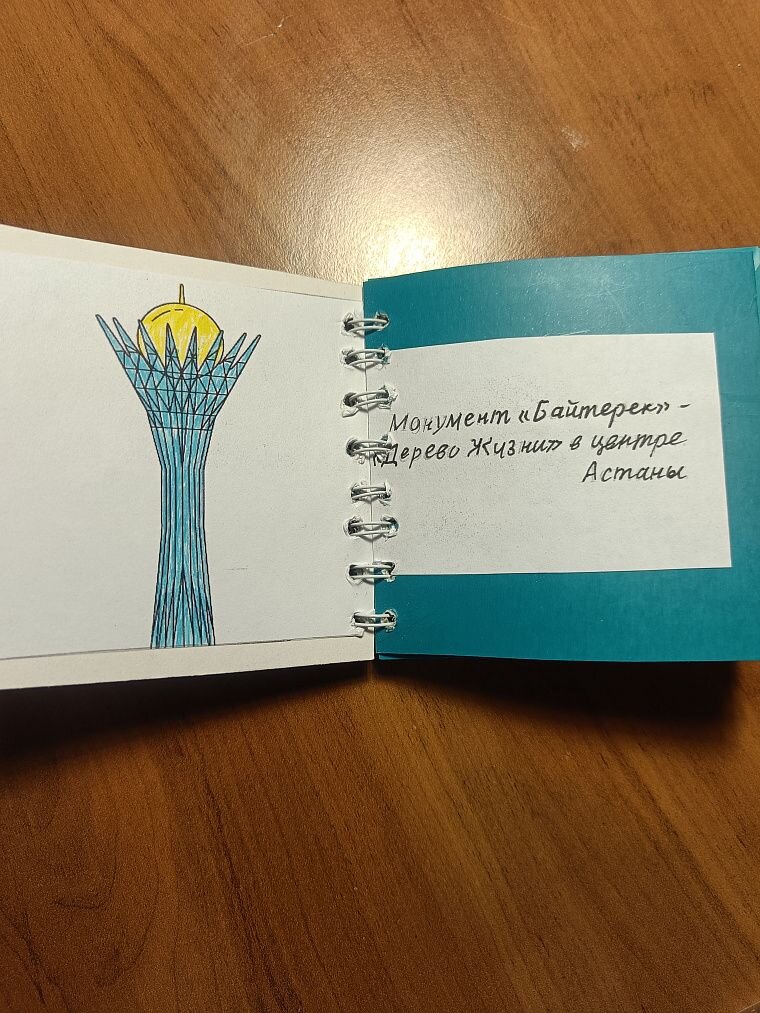 Монумент «Байтерек» -
«Дерево Жизни» в центре
Астаны